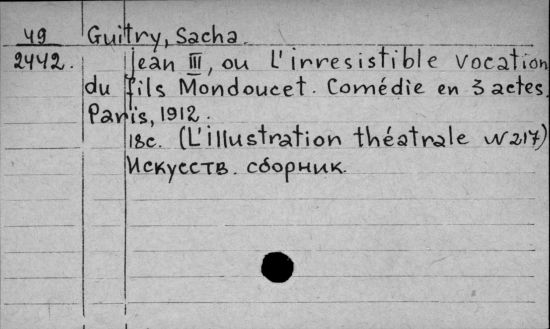 49 Guitry, Sacha.
2442. Jean III, ou L'irresistible vocation
du fils Mondoucet. Comédie en 3 actes.
Paris, 1912.
18c. (L'illustration théatrale N 217)
Искусств. сборник.